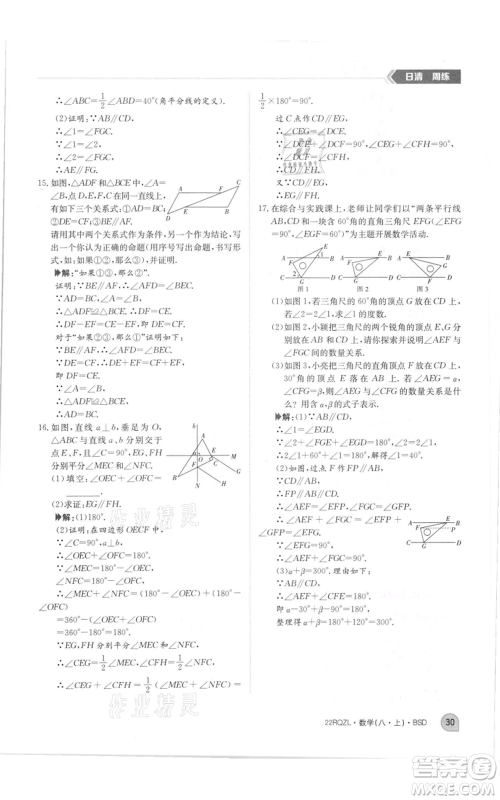 日清 周练
∴∠ABC=1/2∠ABD=40°(角平分线的定义).
(2)证明:∵AB∥CD,
∴∠1=∠FGC.
∵∠1=∠2,
∴∠2=∠FGC,
∴AE∥FG.
15. 如图,△ADF和△BCE中,∠A=
∠B,点D,E,F,C在同一直线上,
有如下三个关系式:①AD=BC;
②DE=CF;③BE∥AF.
请用其中两个关系式作为条件,另一个作为结
论,写出你认为正确的命题(用序号写出命题,书写形
式,如:如果①②,那么③),并证明.
解:"如果①③,那么②"
证明如下:∵BE∥AF,∴∠AFD=∠BEC.
∵AD=BC,∠A=∠B,
∴△ADF≌△BCE,∴DF=CE,
∴DE=CF.
对于"如果②③,那么①"
证明如下:∵BE∥AF,
∴∠AFD=∠BEC.
∵DE=CF,∴DE+EF=CF+EF,
即DF=CE.
∵∠A=∠B,
∴△ADF≌△BCE,
∴AD=BC.
16. 如图,直线a⊥b,垂足为O,
△ABC与直线a,b分别交于
点E,F,且∠C=90°,EG,FH
分别平分∠MEC和∠NFC.
(1)填空:∠OEC+∠OFC=
________.
(2)求证:EG∥FH.
解:(1)180°.
(2)证明:在四边形OECF中,
∵∠C=90°,a⊥b,
∴∠OEC+∠OFC=180°.
∵∠MEC=180°-∠OEC,
∠NFC=180°-∠OFC,
∴∠MEC+∠NFC=360°-(∠OEC
+∠OFC)
=360°-180°
=180°.
∵∠GEC=1/2∠MEC,∠CFH=1/2
∠NFC,
∴∠GEC+∠CFH=1/2(∠MEC+∠NFC)=
1/2×180°=90°.
过C点作CD∥EG,
∴∠GEC=∠DCE.
∵∠DCE+∠DCF=90°,
∠GEC+∠CFH=90°,
∴∠DCF=∠CFH,
∴CD∥FH.
又∵CD∥EG,
∴EG∥FH.
17. 在综合与实践课上,老师让同学们以"两条平行线
AB,CD和一块含60°角的直角三角尺EFG(∠EFG
=90°,∠EGF=60°)"为主题开展数学活动.
图1 图2 图3
(1)如图1,若三角尺的60°角的顶点G放在CD上,若
∠2=2∠1,求∠1的度数;
(2)如图2,小颖把三角尺的两个锐角的顶点E,G分
别放在AB和CD上,请你探索并说明∠AEF与∠FGC
间的数量关系;
(3)如图3,小亮把三角尺的直角顶点F放在CD上,
30°角的顶点E落在AB上.若∠AEG=α,
∠CFG=β,则∠AEG与∠CFG的数量关系是什
么?用含α,β的式子表示.
解:(1)∵AB∥CD,
∴∠1=∠EGD.
∵∠2+∠FGE+∠EGD=180°,∠2=2∠1,
∴2∠1+60°+∠1=180°,
∴∠1=40°.
(2)∠AEF+∠FGC=90°.理由如下:
如图,过点F作FP∥AB.
∵CD∥AB,
∴FP∥AB∥CD.
∴∠AEF=∠EFP,∠FGC=
∠GFP.
∴∠AEF+∠FGC=∠EFP+∠GFP=∠EFG.
∵∠EFG=90°,
∴∠AEF+∠FGC=90°.
(3)α+β=300°.理由如下:
∵AB∥CD,
∴∠AEF+∠CFE=180°,
即α-30°+β-90°=180°,
整理得α+β=300°.
作业精灵
22RQZL·数学(八·上)·BSD 30
答案圈
MXQE.COM